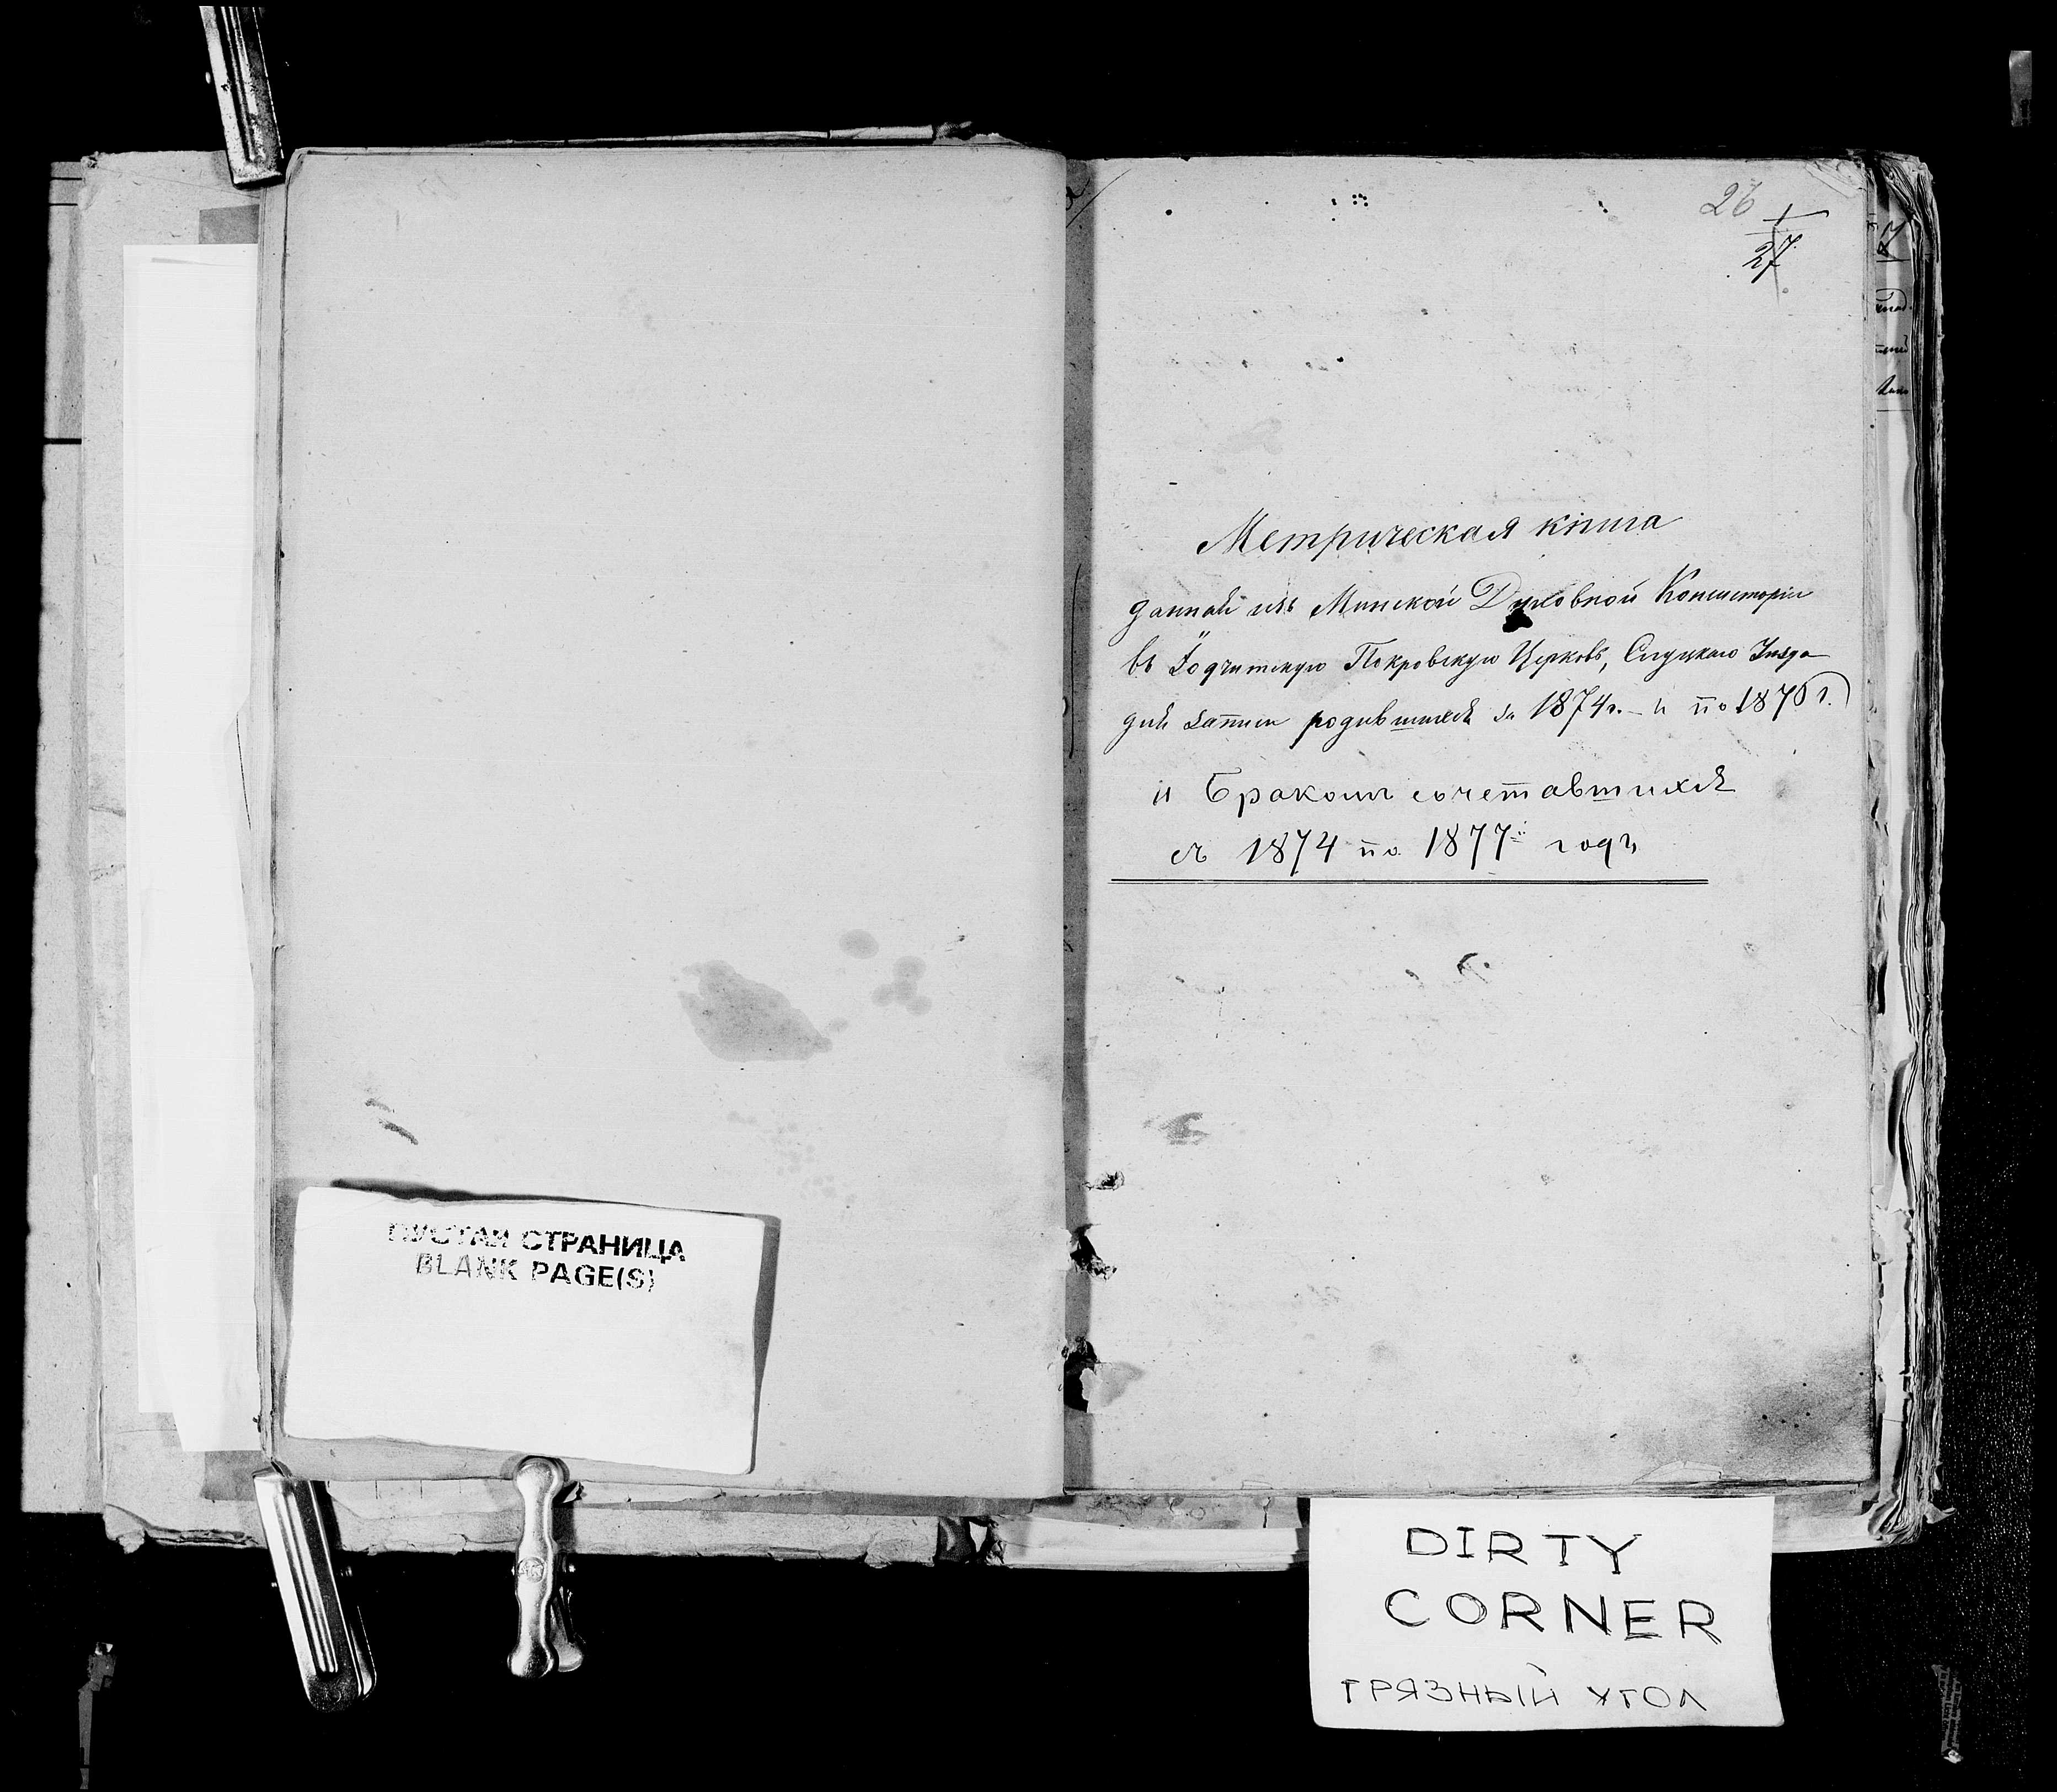 26
27
Метрическая книга
данная изъ Минской Духовной Консисторіи
въ Покровскую Церковь, Слуцкаго Уѣзда
для записи родившихся за 1874 г. – и по 1870 г.
и Бракомъ сочетавшихся
съ 1874 по 1877й годъ
ПУСТАЯ СТРАНИЦА
BLANK PAGE(S)
DIRTY
CORNER
ГРЯЗНЫЙ УГОЛ